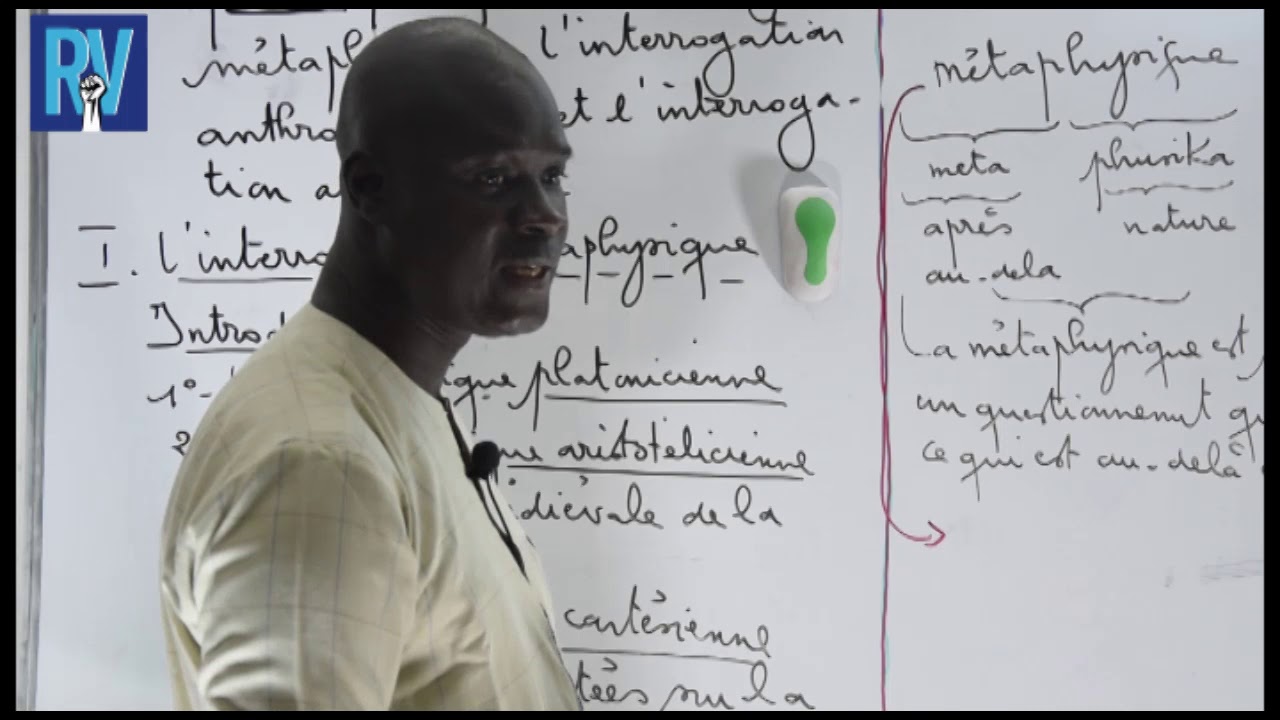 RV
métaph l'interrogation
anthro et l'interroga-
tion a
I. l'interro aphysique
Introd
1°- ique platonicienne
2 ue aristotélicienne
diévale de la
cartésienne
tées sur la
métaphysique
meta phusika
après nature
au-dela
La métaphysique est
un questionnement qu
ce qui est au-delà